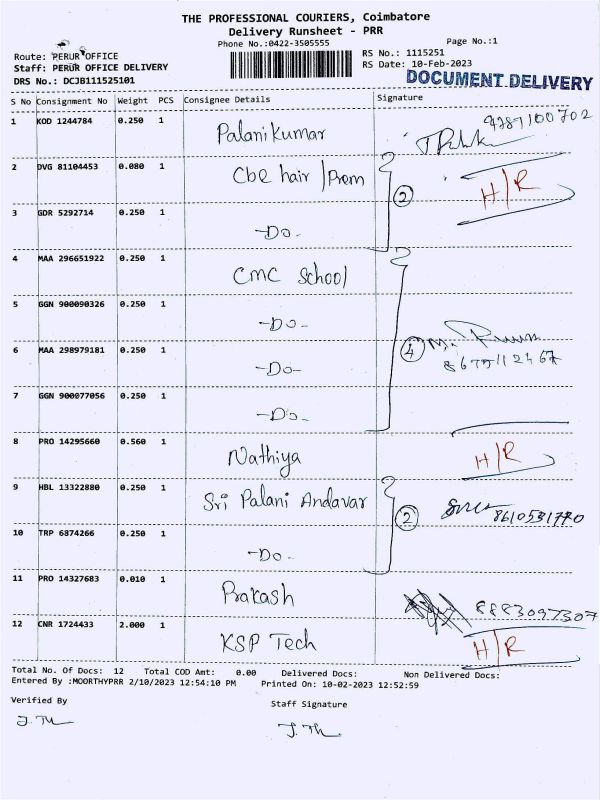 THE PROFESSIONAL COURIERS, Coimbatore
Delivery Runsheet - PRR
Phone No.:0422-3505555
Page No.:1
Route: PERUR OFFICE
RS No.: 1115251
Staff: PERUR OFFICE DELIVERY
RS Date: 10-Feb-2023
DRS No.: DCJB111525101
DOCUMENT DELIVERY
S No Consignment No Weight PCS Consignee Details Signature
1 KOD 1244784 0.250 1 Palanikumar
2 DVG 81104453 0.080 1 Cbe hair / Prem ② H/R
3 GDR 5292714 0.250 1 -Do-
4 MAA 296651922 0.250 1 CMC School
5 GGN 900090326 0.250 1 -Do-
6 MAA 298979181 0.250 1 -Do- ④
7 GGN 900077056 0.250 1 -Do-
8 PRO 14295660 0.560 1 Nathiya H/R
9 HBL 13322880 0.250 1 Sri Palani Andavar ②
10 TRP 6874266 0.250 1 -Do-
11 PRO 14327683 0.010 1 Prakash 8883097307
12 CNR 1724433 2.000 1 KSP Tech H/R
Total No. Of Docs: 12 Total COD Amt: 0.00 Delivered Docs: Non Delivered Docs:
Entered By :MOORTHYPRR 2/10/2023 12:54:10 PM Printed On: 10-02-2023 12:52:59
Verified By
Staff Signature